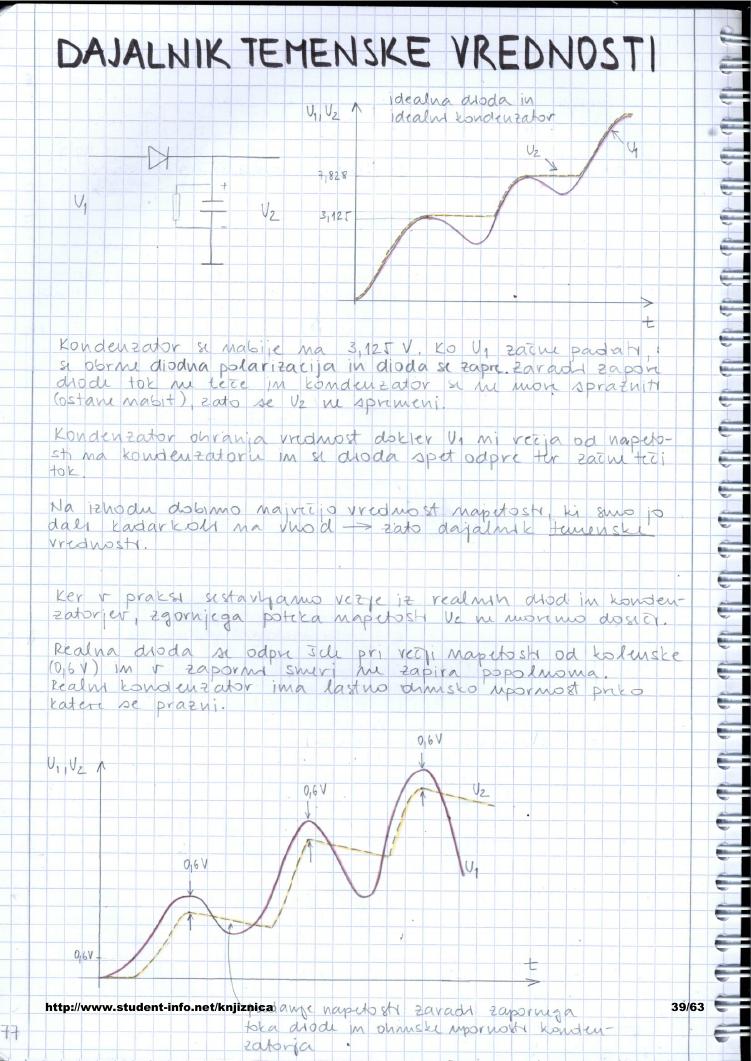 DAJALNIK TEMENSKE VREDNOSTI
idealna dioda in
idealni kondenzator
U1, U2
U2
U1
7,828
3,125
t
U1
+
-
U2
Kondenzator se nabije na 3,125 V. Ko U1 začne padati,
se obrne diodna polarizacija in dioda se zapre. Zaradi zapore
diode tok ne teče in kondenzator se ne more sprazniti
(ostane nabit), zato se U2 ne spremeni.
Kondenzator ohranja vrednost dokler U1 ni večja od napeto-
sti na kondenzatorju in se dioda spet odpre ter začne teči
tok.
Na izhodu dobimo največjo vrednost napetosti, ki smo jo
dali kadarkoli na vhod → zato dajalnik temenske
vrednosti.
Ker v praksi sestavljamo vezje iz realnih diod in konden-
zatorjev, zgornjega poteka napetosti Uc ne moremo doseči.
Realna dioda se odpre šele pri večji napetosti od kolenske
(0,6 V) in v zaporni smeri ne zapira popolnoma.
Realni kondenzator ima lastno ohmsko upornost preko
katere se prazni.
U1, U2
0,6V
0,6V
0,6V
U2
U1
0,6V
t
http://www.student-info.net/knjiznica
39/63
napetosti zaradi zapornega
toka diode in ohmske upornosti konden-
zatorja
77